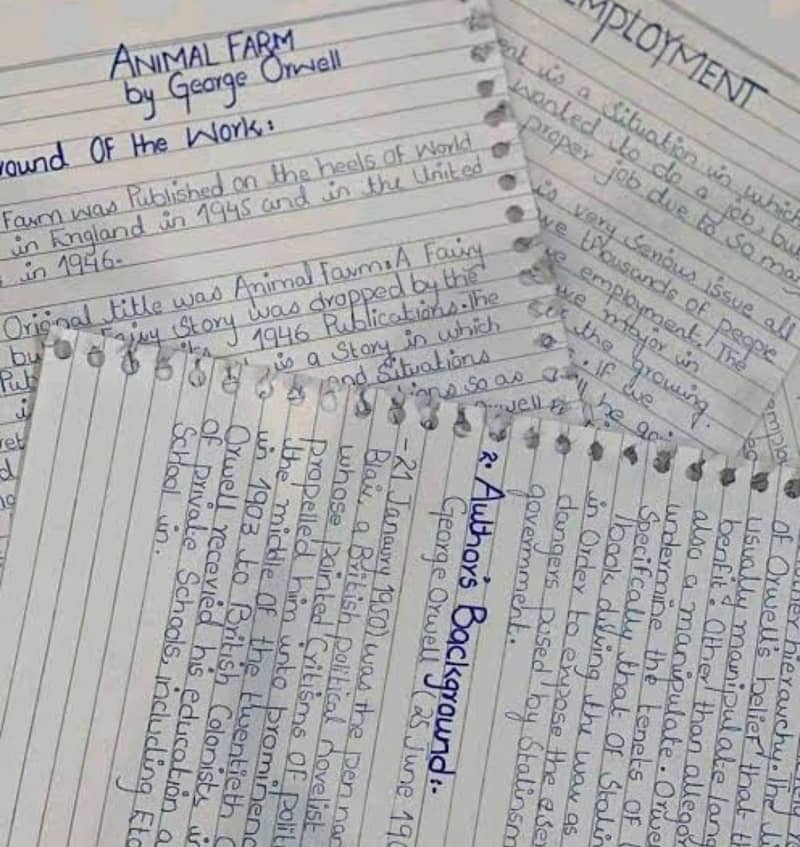 ANIMAL FARM
by George Orwell
OF the Work:
Farm was Published on the heels of World
in England in 1945 and in the United
in 1946.
Original title was Animal Farm: A Fairy
Fairy Story was dropped by the
1946 Publications. The
is a Story in which
and Situations
so as
EMPLOYMENT
is a Situation in which
wanted to do a job, but
proper job due to so many
is very serious issue all
thousands of people
employment. The
major in
the growing.
If we
be
2. Author's Background:.
George Orwell (25 June 190
- 21 Janaury 1950) was the pen nam
Blair, a British political novelist
whose painted Critisms of polit
propelled him unto prominenc
the middle of the twentieth C
in 1903 to British Colonists in
Orwell recevied his education a
of private Schools, including Eto
School in.
hierarchy. The
of Orwell's belief that th
Usually manipulate lang
benfit. Other than allegor
also a manipulate. Orwe
undermine the tenets of
Specifcally that of Stalin
book diving the war as
in Order to expose the
dangers posed by Stalinsm
government.